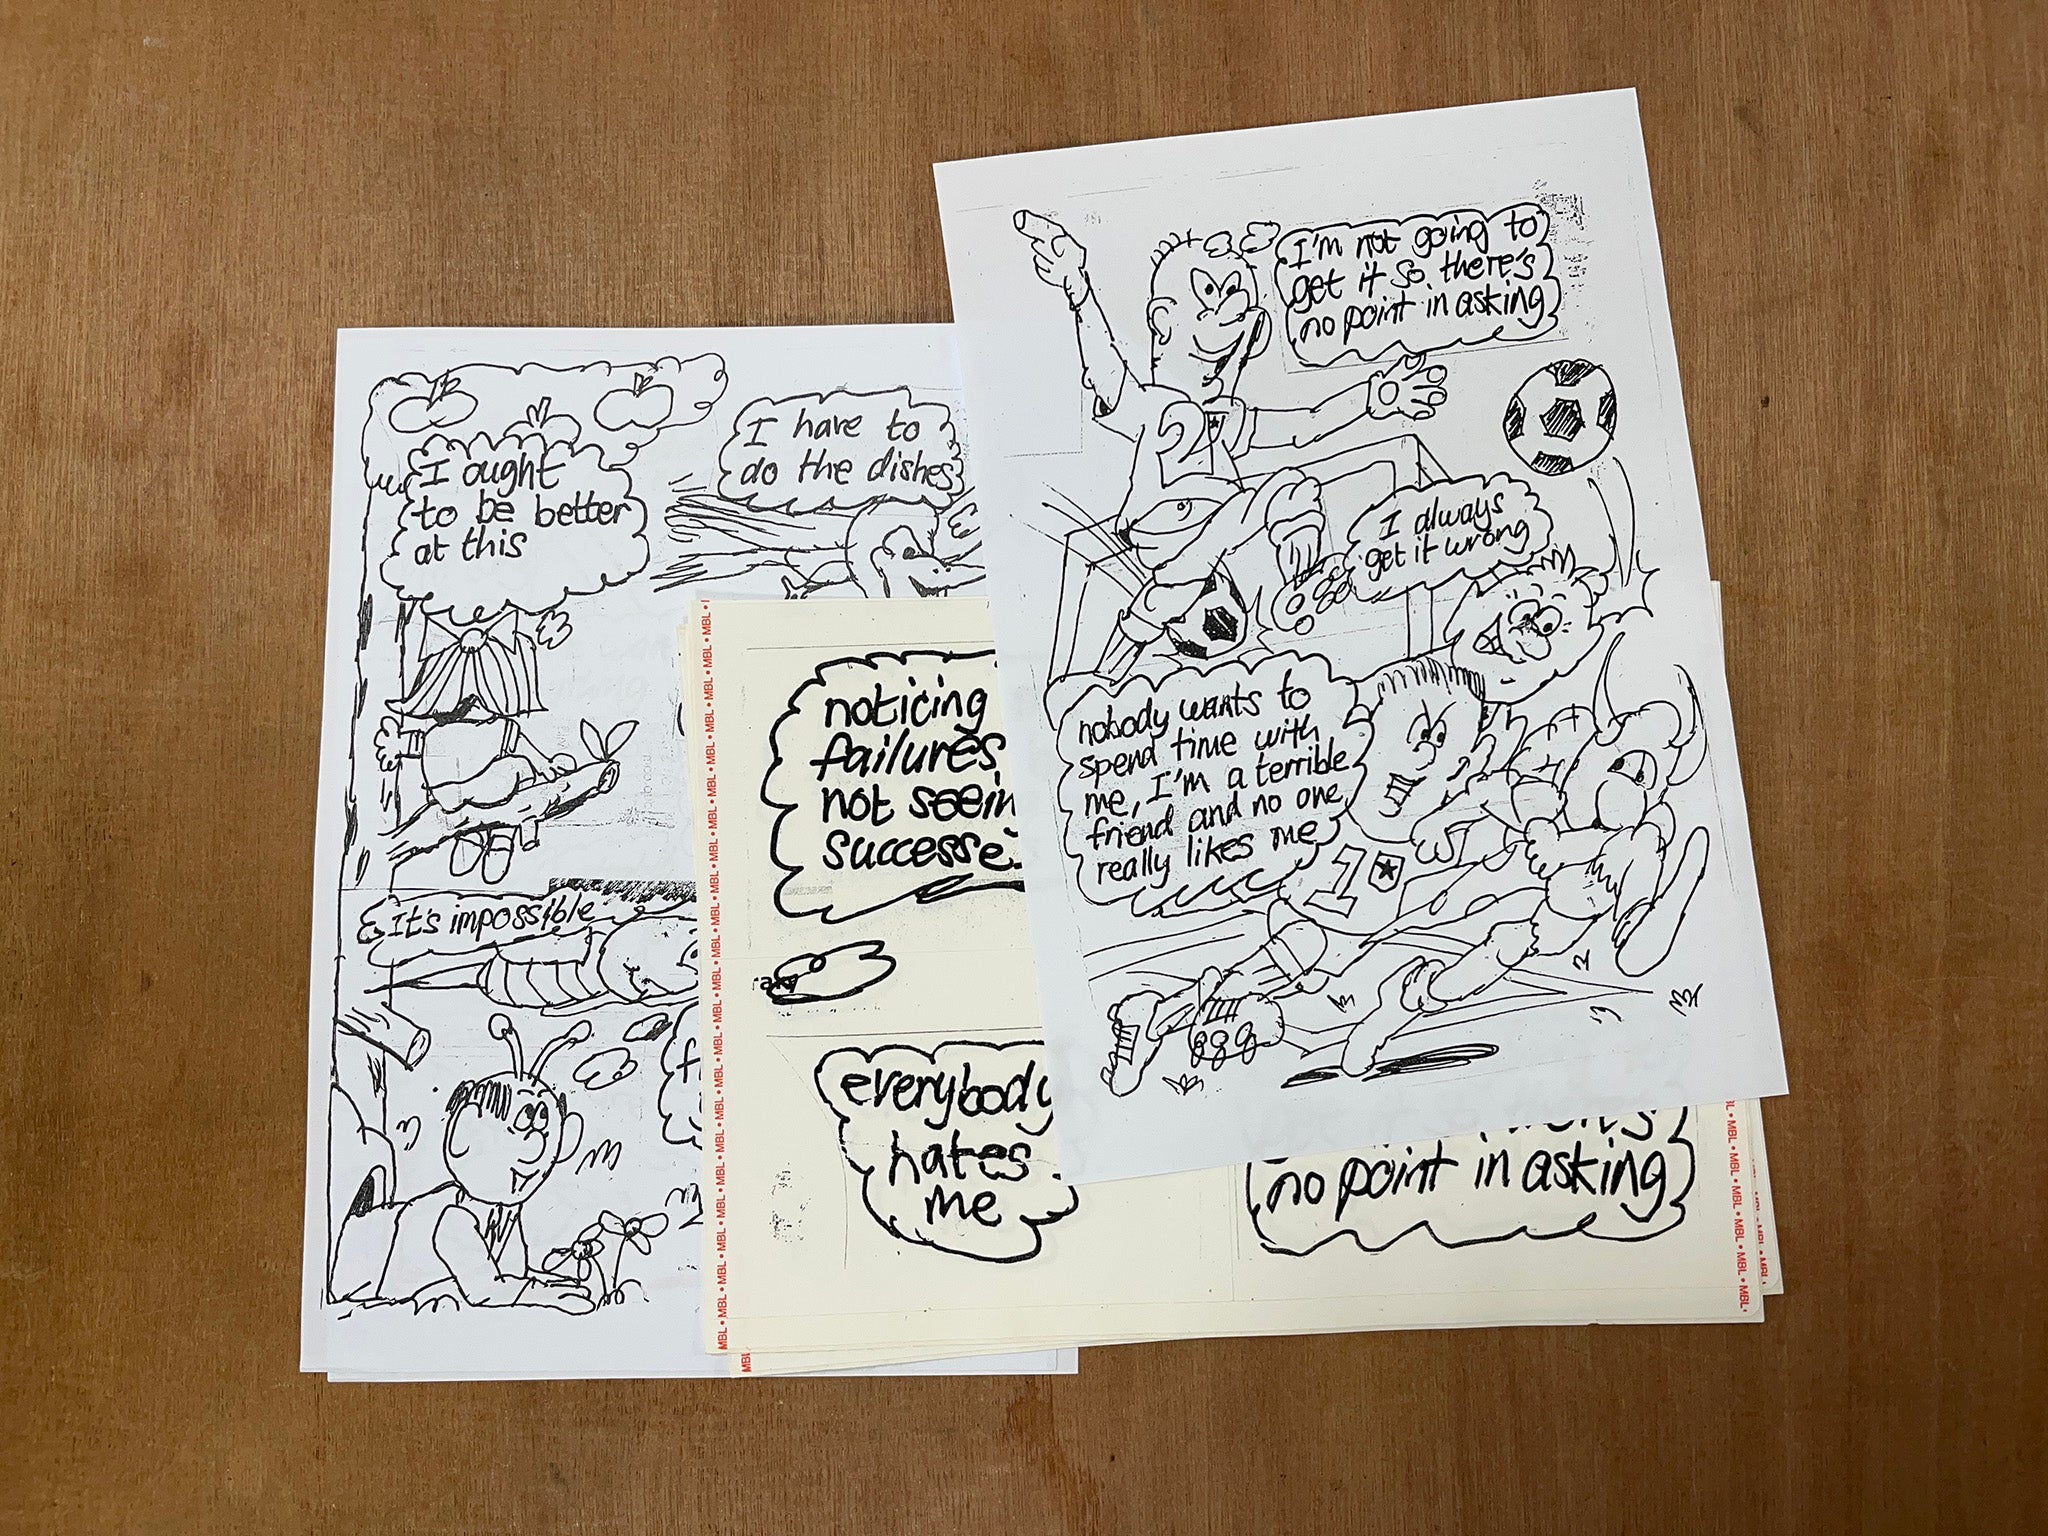 I ought
to be better
at this
I have to
do the dishes
It's impossible
noticing
failures,
not seein
successe
everybody
hates
me
no point in asking
I'm not going to
get it so there's
no point in asking
24
I always
get it wrong
nobody wants to
spend time with
me, I'm a terrible
friend and no one
really likes me
10
MBL • MBL • MBL • MBL • MBL • MBL • MBL • MBL • MBL • MBL • MBL • MBL
MBL • MBL • MBL • MBL • MBL • MBL